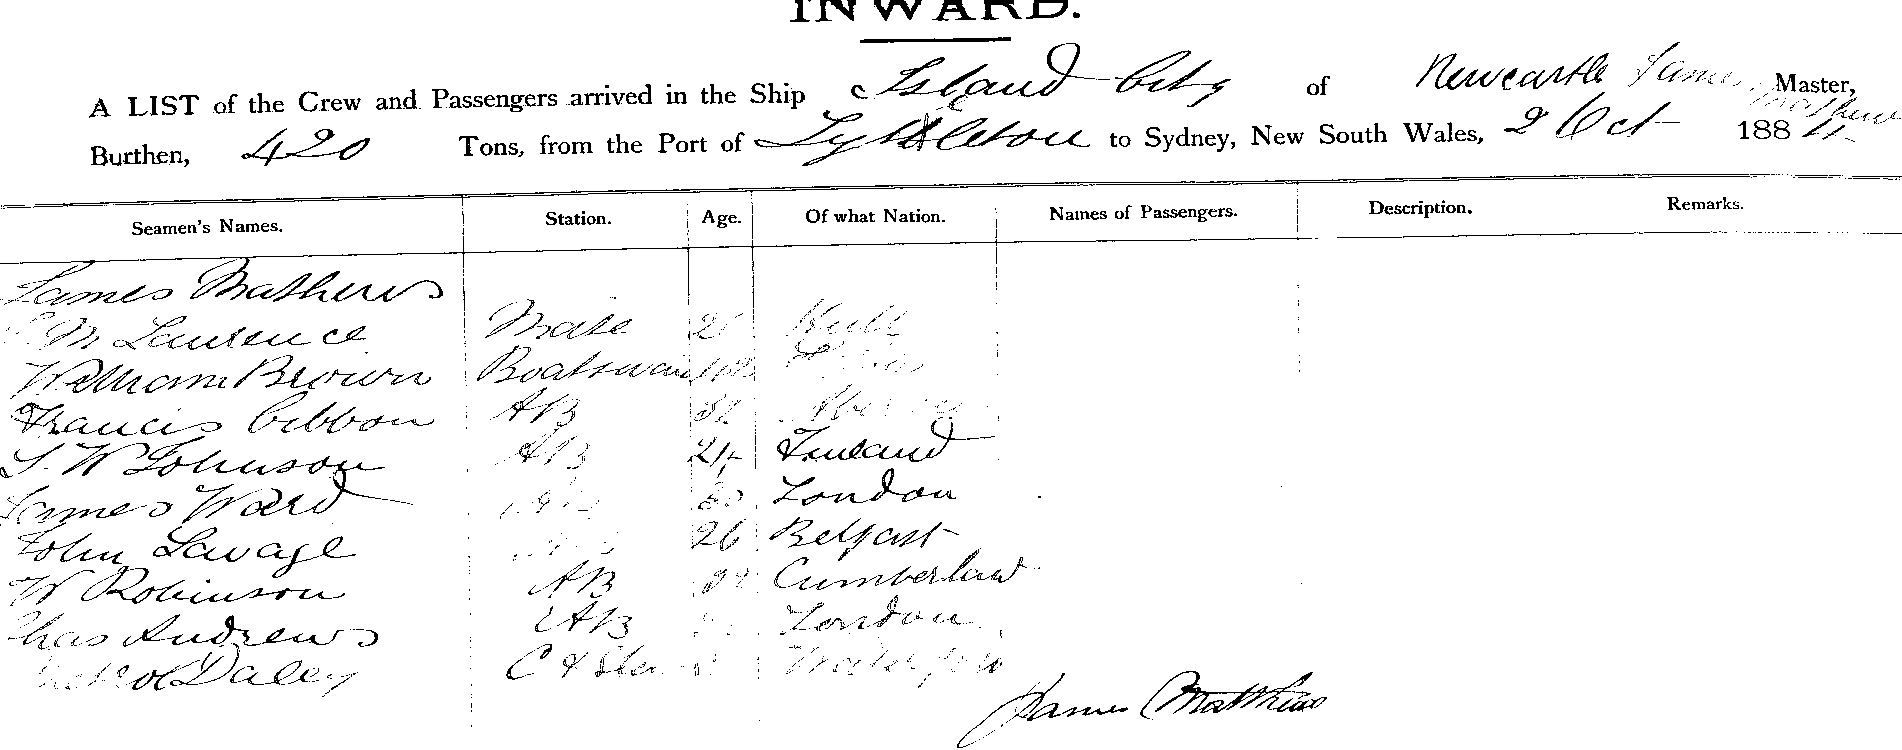 INWARD.
A LIST of the Crew and Passengers arrived in the Ship Island City of Newcastle James Mathews Master,
Burthen, 420 Tons, from the Port of Lyttleton to Sydney, New South Wales, 2 Oct 1884
Seamen's Names. Station. Age. Of what Nation. Names of Passengers. Description. Remarks.
James Mathews
M Laurence Mate Hull
William Brown Boatswain
Francis Gibbon AB
J. W Johnson AB 24 Finland
James Ward London
John Savage 26 Belfast
W Robinson AB Cumberland
Chas Andrews AB London
Daley C & Stew Waterford
James Matthews